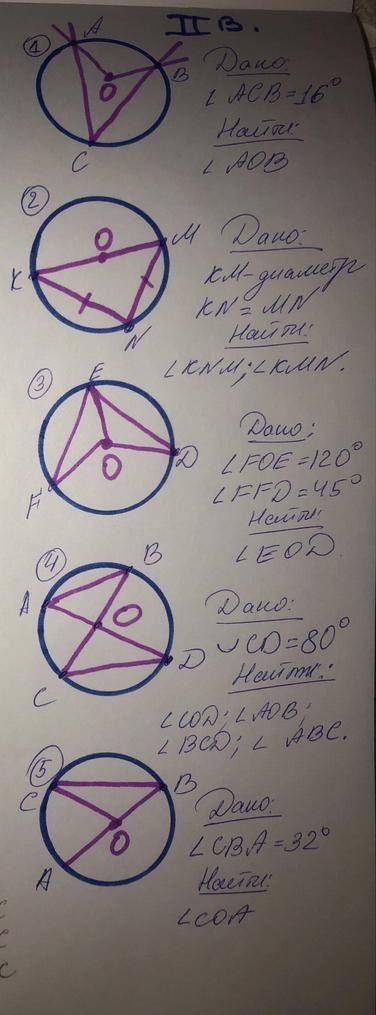 II В.
1
A
B
C
O
Дано:
∠ ACB = 16°
Найти:
∠ AOB
2
K
O
M
N
Дано:
KM - диаметр
KN = MN
Найти:
∠KNM; ∠KMN.
3
E
O
D
F
Дано:
∠FOE = 120°
∠FFD = 45°
Найти
∠EOD.
4
A
B
O
C
D
Дано:
◡CD = 80°
Найти:
∠COD; ∠AOB;
∠BCD; ∠ ABC.
5
C
B
O
A
Дано:
∠CBA = 32°
Найти:
∠COA